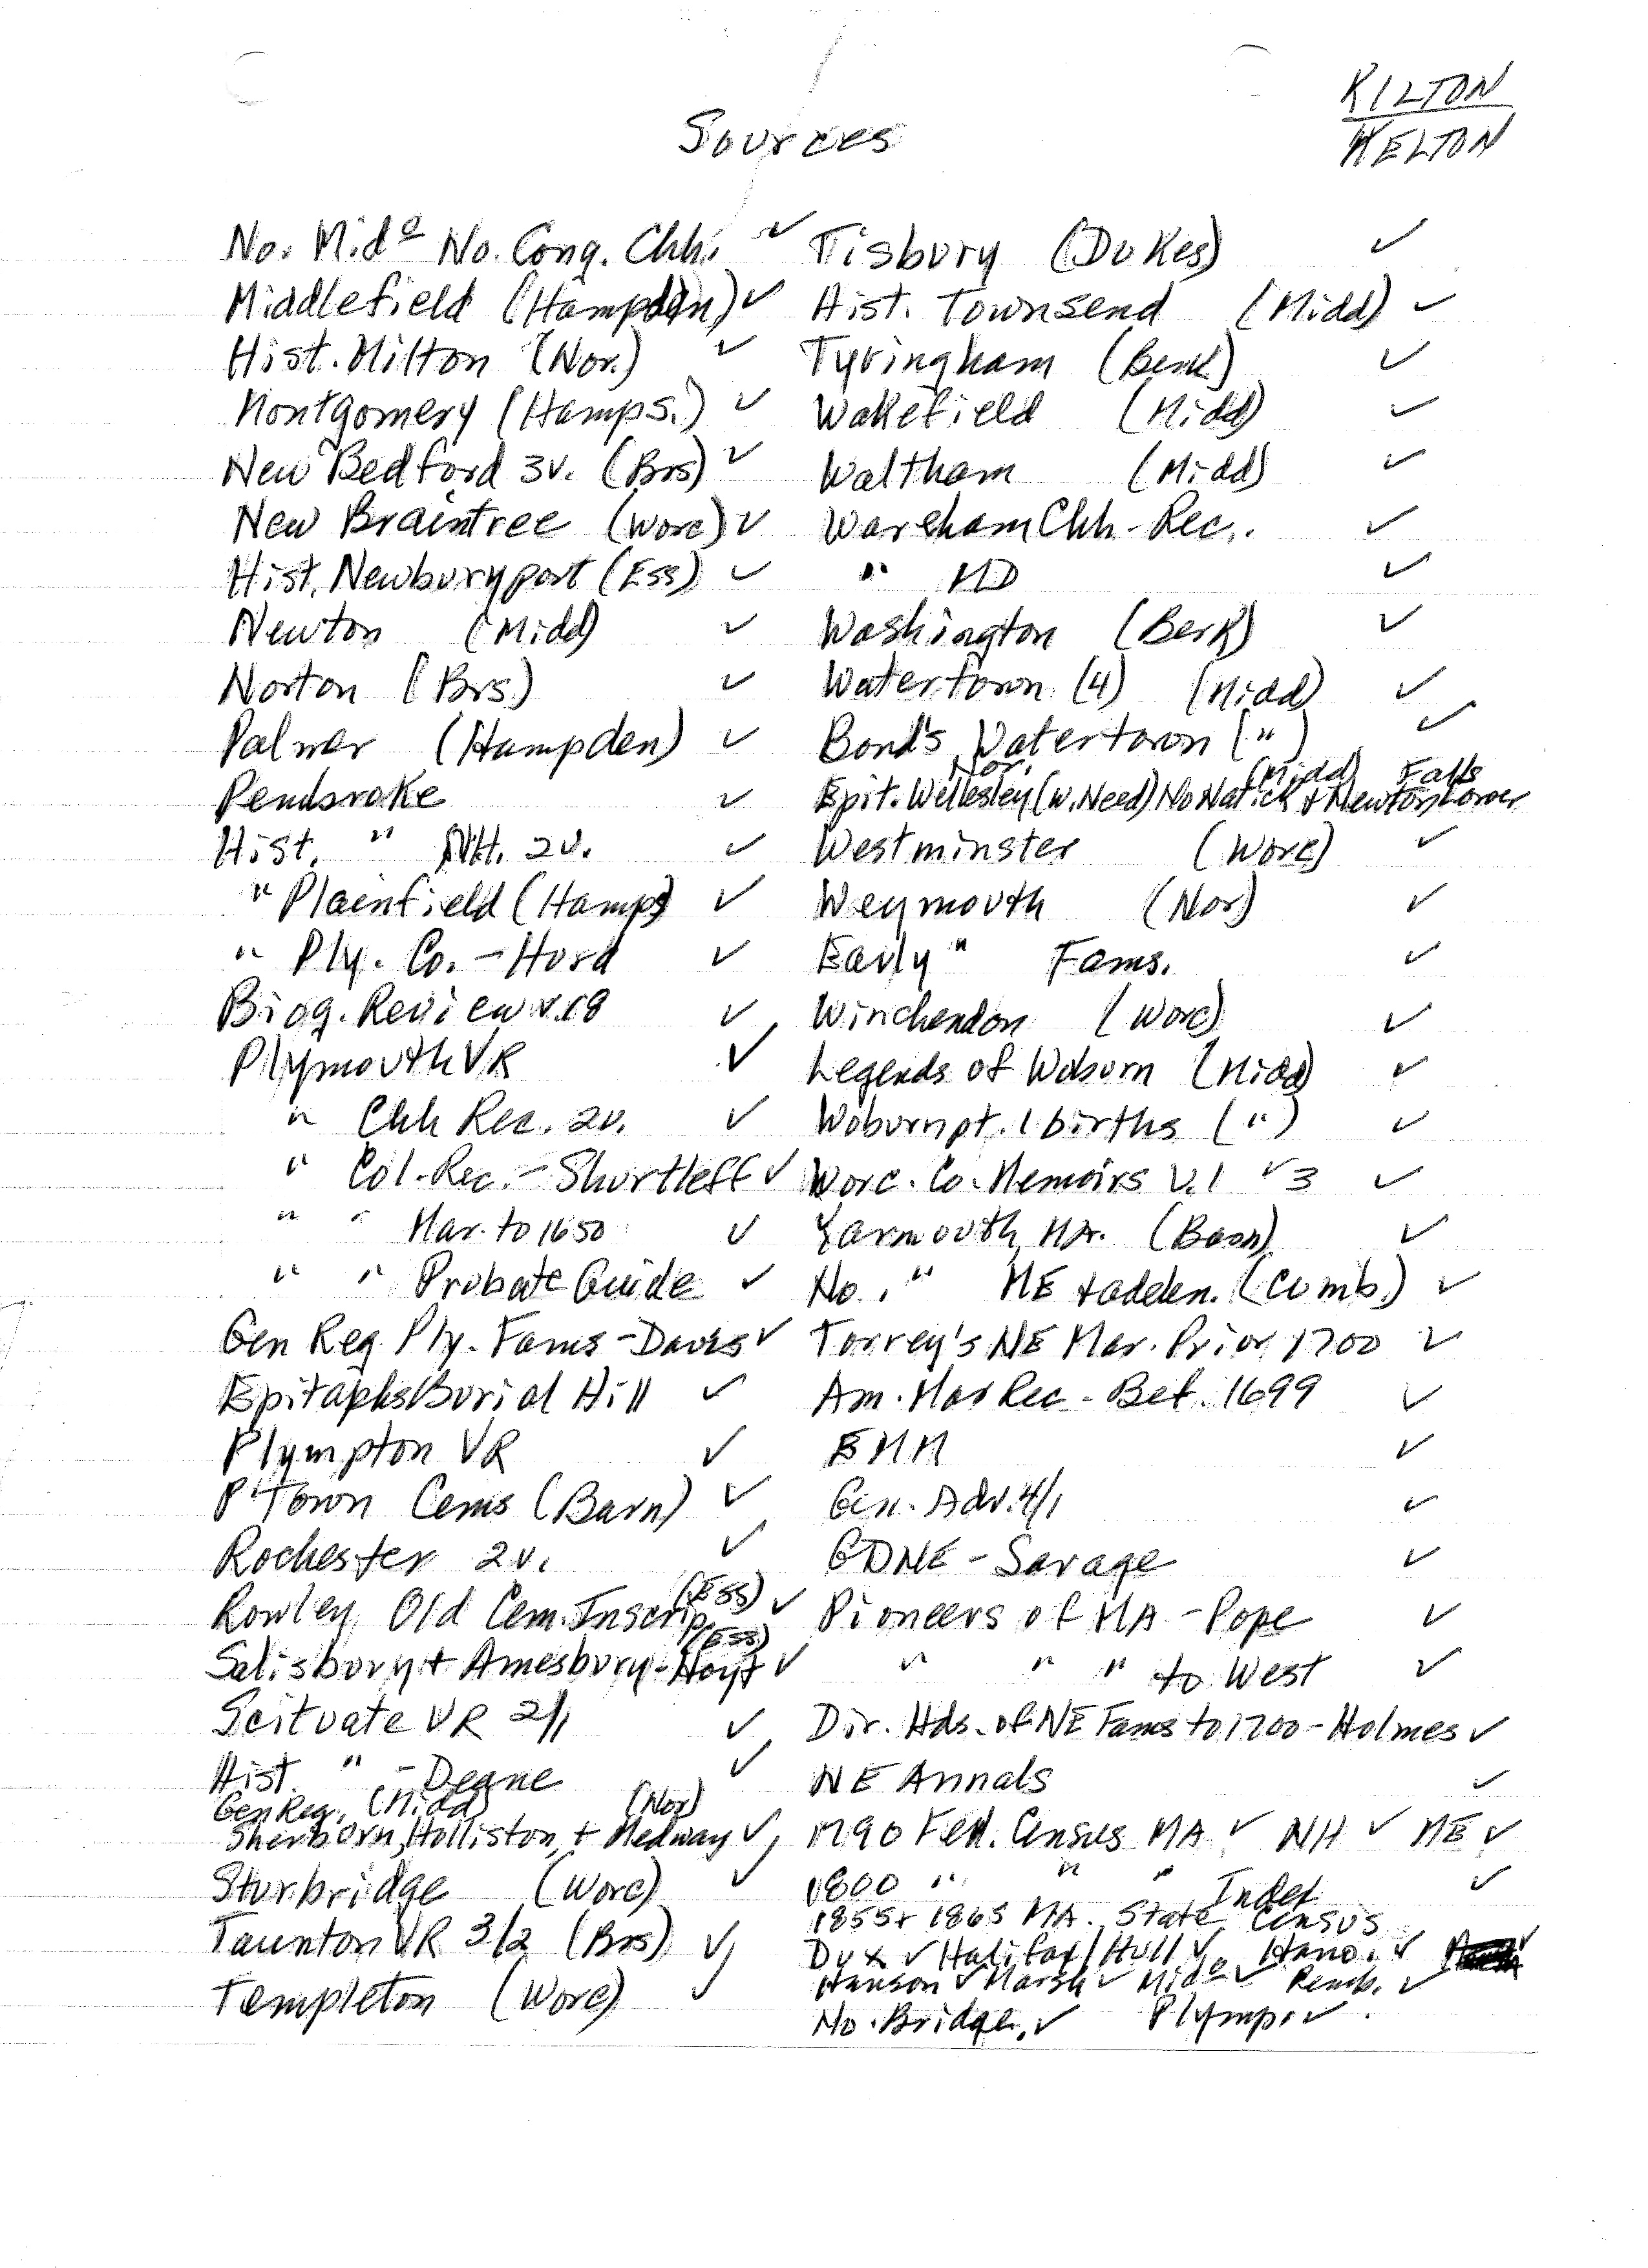 KILTON
KELTON
Sources
No. Mido No. Cong. Chh. ✓
Middlefield (Hampden) ✓
Hist. Milton (Nor.) ✓
Montgomery (Hamps.) ✓
New Bedford 3v. (Brs) ✓
New Braintree (Worc) ✓
Hist. Newburyport (Ess) ✓
Newton (Midd) ✓
Norton (Brs.) ✓
Palmer (Hampden) ✓
Pembroke ✓
Hist. " NH. 2v. ✓
" Plainfield (Hamps) ✓
" Ply. Co. - Hurd ✓
Biog. Review v.18 ✓
Plymouth VR ✓
" Chh Rec. 2v. ✓
" Col. Rec. - Shurtleff ✓
" " Mar. to 1650 ✓
" " Probate Guide ✓
Gen Reg Ply. Fams - Davis ✓
Epitaphs Burial Hill ✓
Plympton VR ✓
P'Town Cems (Barn) ✓
Rochester 2v. ✓
Rowley Old Cem. Inscrip (Ess) ✓
Salisbury + Amesbury - Hoyt (Ess) ✓
Scituate VR 2/1 ✓
Hist. " - Deane ✓
Gen Reg. (Midd) (Nor)
Sherborn, Holliston, + Medway ✓
Sturbridge (Worc) ✓
Taunton VR 3/2 (Brs) ✓
Templeton (Worc) ✓
Tisbury (Dukes) ✓
Hist. Townsend (Midd) ✓
Tyringham (Berk) ✓
Wakefield (Midd) ✓
Waltham (Midd) ✓
Wareham Chh. Rec. ✓
" MD ✓
Washington (Berk) ✓
Watertown (4) (Midd) ✓
Bond's Watertown (") ✓
Nor. (Midd) Falls
Epit. Wellesley (W. Need) No Natick + Newton Lower
Westminster (Worc) ✓
Weymouth (Nor) ✓
Early " Fams. ✓
Winchendon (Worc) ✓
Legends of Woburn (Midd) ✓
Woburn pt. 1 births (") ✓
Worc. Co. Memoirs V.1 ✓ 3 ✓
Yarmouth, MA. (Barn) ✓
No. " ME + adden. (Cumb.) ✓
Torrey's NE Mar. Prior 1700 ✓
Am. Mar Rec - Bef. 1699 ✓
EMM ✓
Gen. Adv. 4/1 ✓
GDNE - Savage ✓
Pioneers of MA - Pope ✓
" " " to West ✓
Dir. Hds. of NE Fams to 1700 - Holmes ✓
NE Annals ✓
1790 Fed. Census MA ✓ NH ✓ ME ✓
1800 " " " Index ✓
1855 + 1865 MA. State Census
Dux ✓ Halifax / Hull ✓ Hano. ✓
Hanson ✓ Marsh ✓ Mido ✓ Pemb. ✓
No. Bridge. ✓ Plymp. ✓